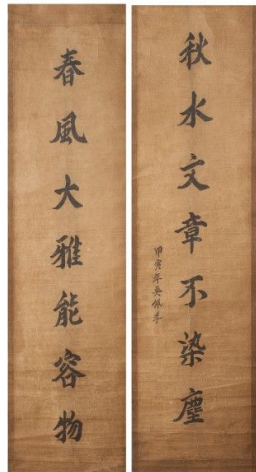 秋水文章不染塵
甲寅年吳佩孚
春風大雅能容物